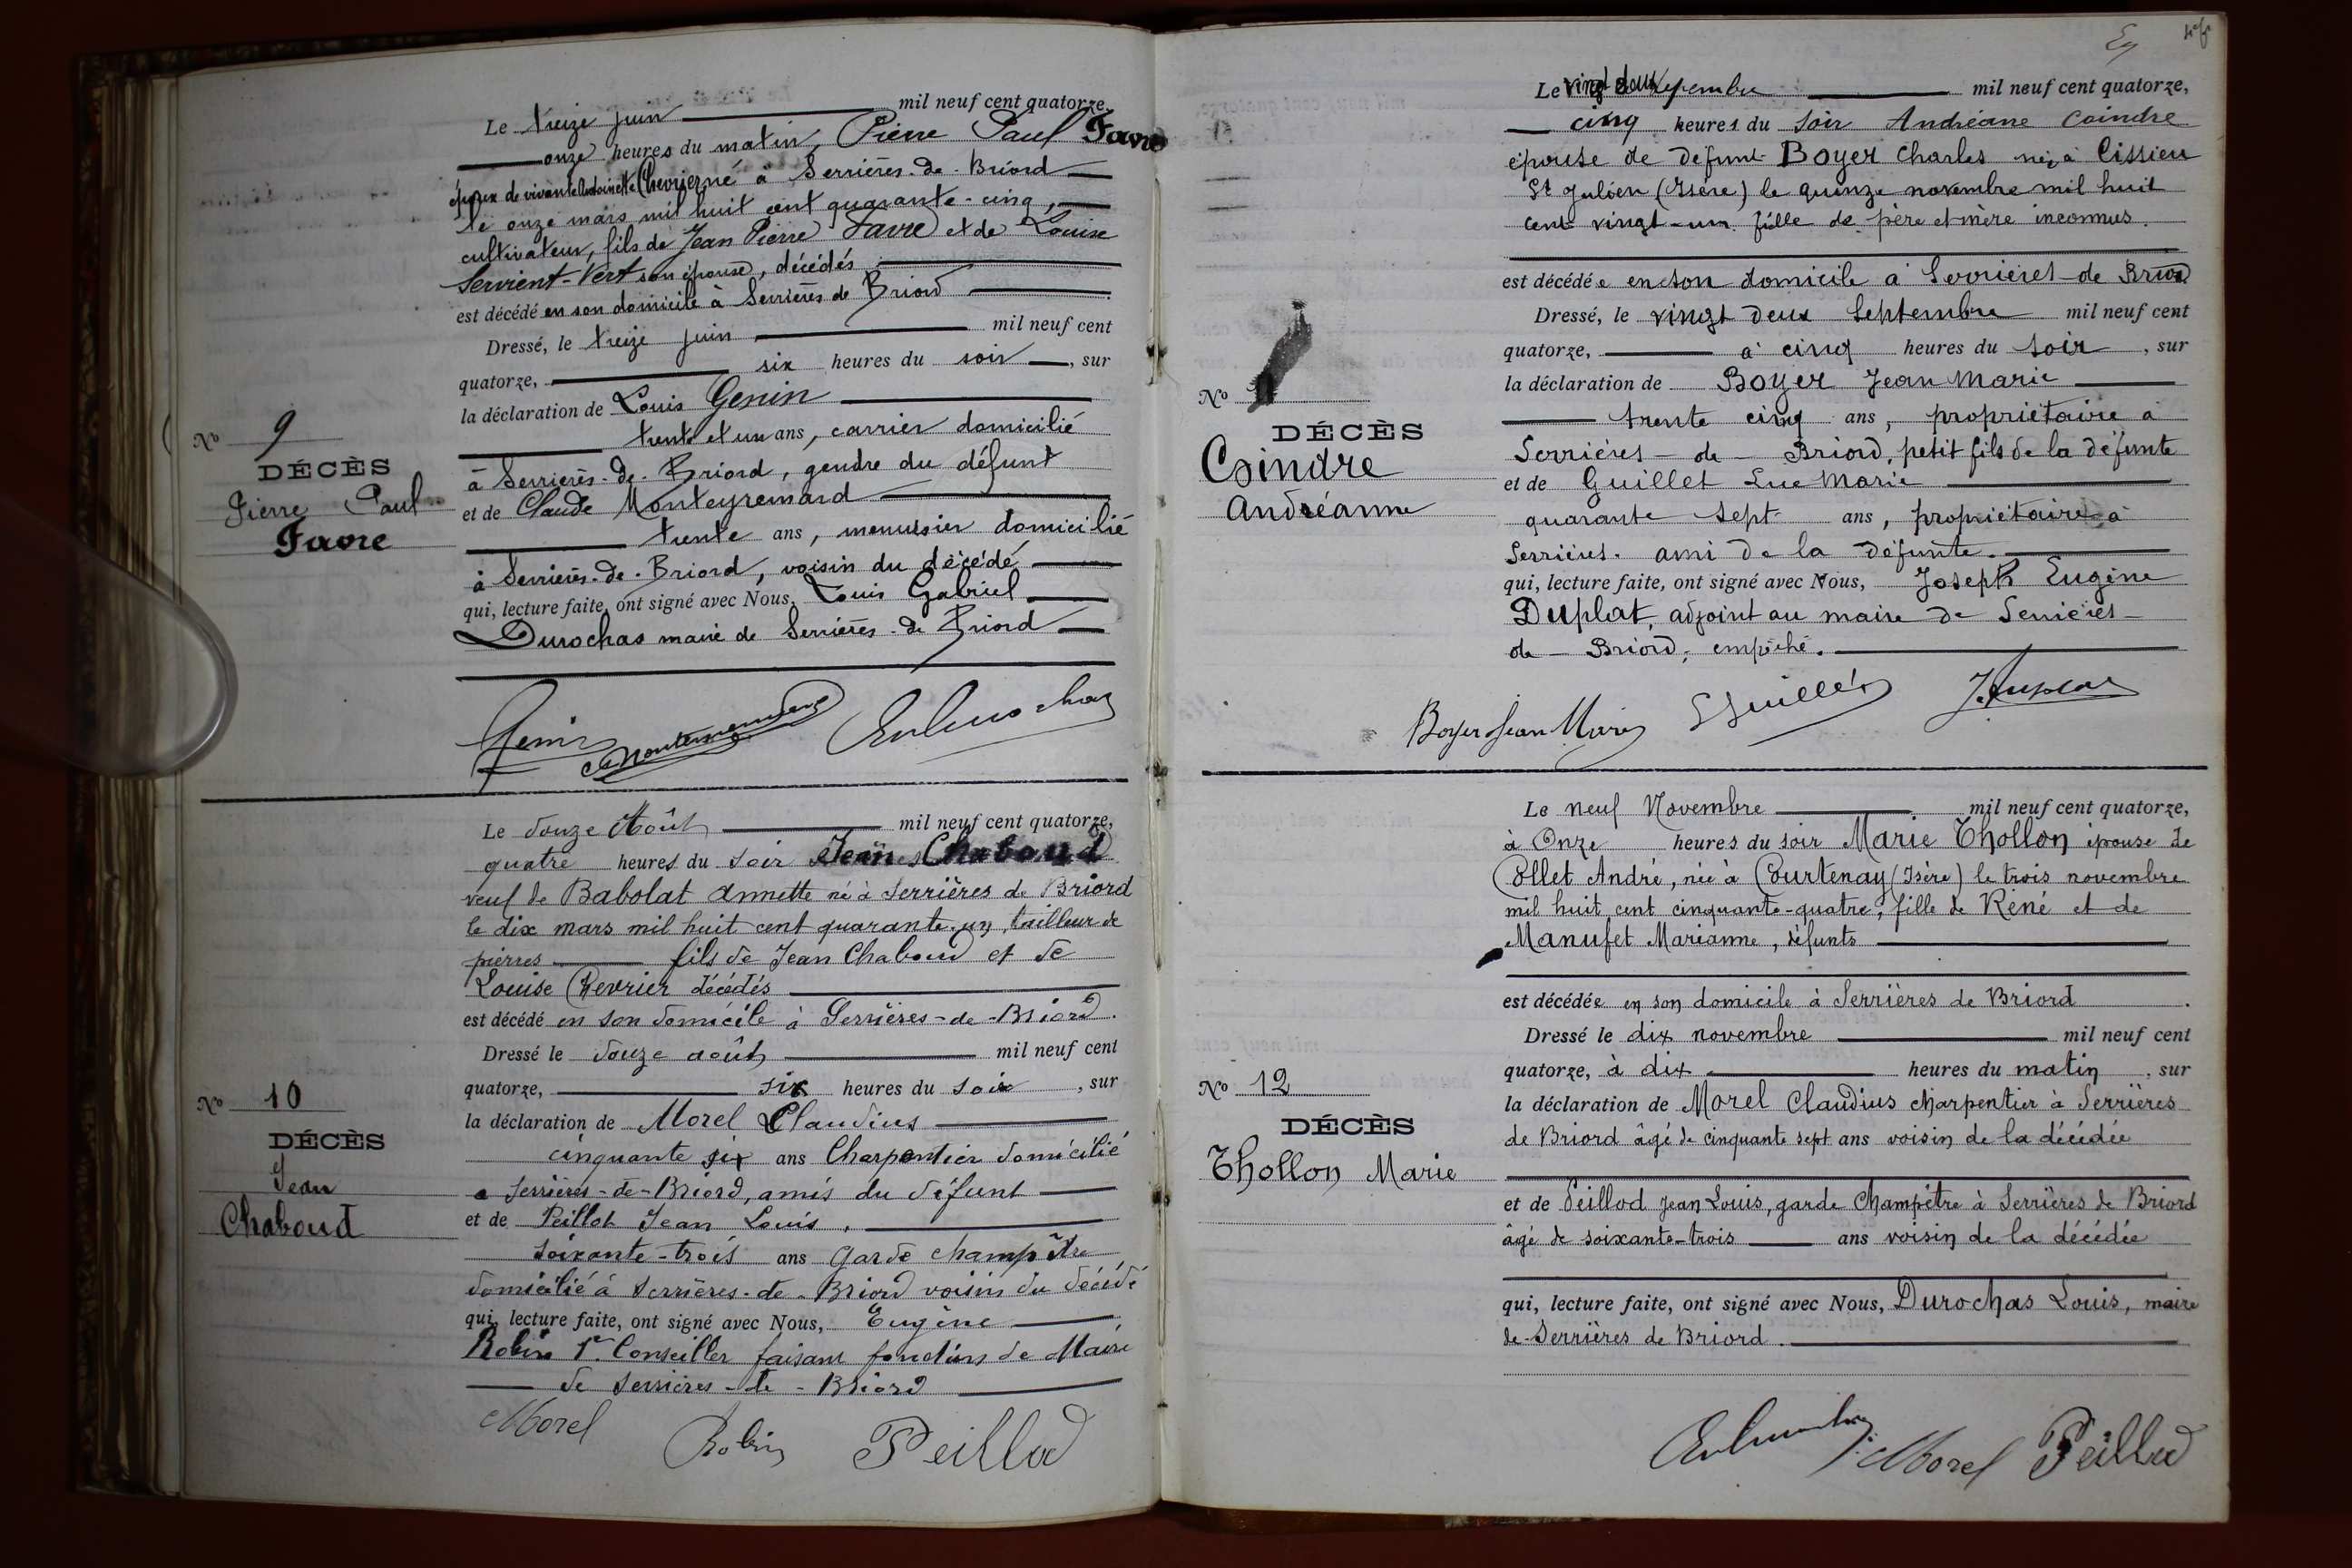 Le treize juin mil neuf cent quatorze,
onze heures du matin, Pierre Paul Favre
époux de vivante Antoinette Chevrier né à Serrières-de-Briord
le onze mars mil huit cent quarante-cinq,
cultivateur, fils de Jean Pierre Favre et de Louise
Servient-Vert son épouse, décédés
est décédé en son domicile à Serrières de Briord
Dressé, le treize juin mil neuf cent
quatorze, six heures du soir, sur
la déclaration de Louis Genin
trente et un ans, carrier domicilié
à Serrières-de-Briord, gendre du défunt
et de Claude Monteyremard
trente ans, menuisier domicilié
à Serrières-de-Briord, voisin du décédé
qui, lecture faite, ont signé avec Nous, Louis Gabriel
Durochas maire de Serrières-de Briord
Genin
No 9
DÉCÈS
Pierre Paul
Favre
Le douze Août mil neuf cent quatorze,
quatre heures du soir Jean Chaboud
veuf de Babolat Annette né à Serrières de Briord
le dix mars mil huit cent quarante-un, tailleur de
pierres fils de Jean Chaboud et de
Louise Chevrier décédés
est décédé en son domicile à Serrières-de-Briord.
Dressé le douze août mil neuf cent
quatorze, six heures du soir, sur
la déclaration de Morel Claudius
cinquante six ans Charpentier domicilié
a Serrières-de-Briord, amis du défunt
et de Peillot Jean Louis,
soixante-trois ans garde champêtre
domicilié à Serrières-de-Briord voisin du décédé
qui, lecture faite, ont signé avec Nous, Eugène
Robin 1er Conseiller faisant fonctions de Maire
de Serrières-de-Briord
Morel Robin Peillod
No 10
DÉCÈS
Jean
Chaboud
Le vingt deux septembre mil neuf cent quatorze,
cinq heures du soir Andréane Coindre
épouse de défunt Boyer Charles née à Cissieu
St Julien (Isère) le quinze novembre mil huit
cent vingt-un fille de père et mère inconnus.
est décédée en son domicile à Serrières-de Briord
Dressé, le vingt deux Septembre mil neuf cent
quatorze, à cinq heures du soir, sur
la déclaration de Boyer Jean Marie
trente cinq ans, propriétaire à
Serrières-de-Briord, petit fils de la défunte
et de Guillet Luc Marie
quarante sept ans, propriétaire à
Serrières. ami de la défunte.
qui, lecture faite, ont signé avec Nous, Joseph Eugène
Duplat, adjoint au maire de Serrières-
de-Briord, empêché.
Boyer Jean Marie
No
DÉCÈS
Coindre
Andréanne
Le neuf Novembre mil neuf cent quatorze,
à Onze heures du soir Marie Thollon épouse de
Collet André, née à Courtenay (Isère) le trois novembre
mil huit cent cinquante-quatre, fille de Réné et de
Manufet Marianne, défunts
est décédée en son domicile à Serrières de Briord.
Dressé le dix novembre mil neuf cent
quatorze, à dix heures du matin, sur
la déclaration de Morel Claudius charpentier à Serrières
de Briord âgé de cinquante sept ans voisin de la décédée
et de Peillod Jean Louis, garde Champêtre à Serrières de Briord
âgé de soixante-trois ans voisin de la décédée
qui, lecture faite, ont signé avec Nous, Durochas Louis, maire
de Serrières de Briord.
Morel Peillod
No 12
DÉCÈS
Thollon Marie